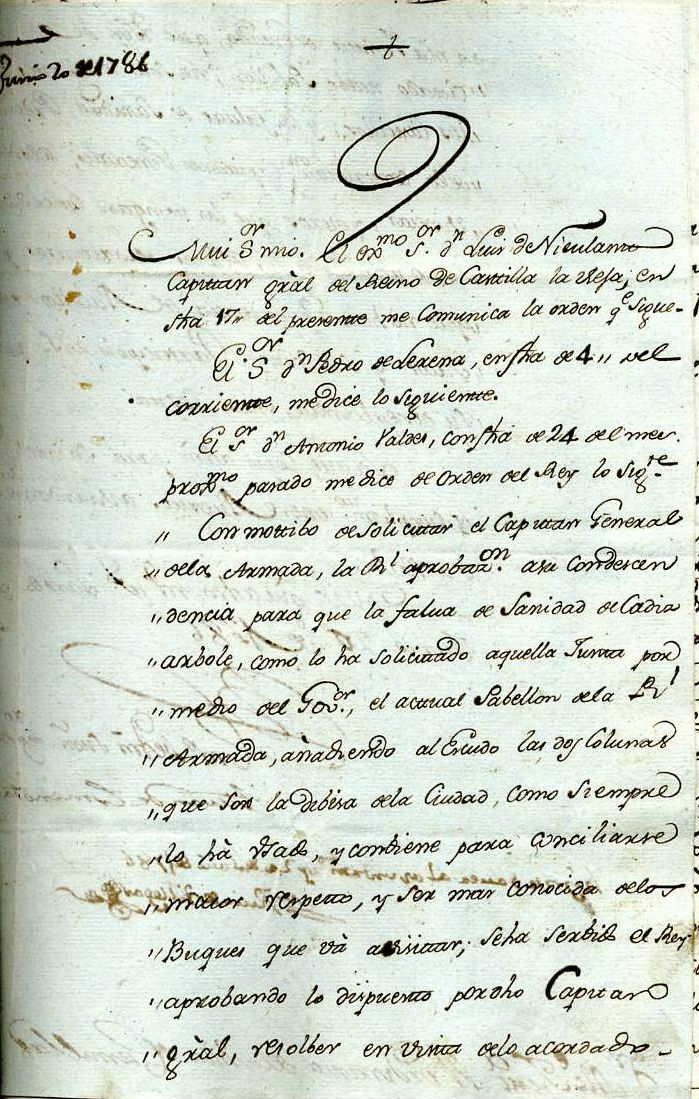 Junio 20 de 1786
Mui Sor mio. El exmo Sor. dn Luis de Nieulant
Capitan grāl del Reino de Castilla la Vieja, en
fha 17,, del presente me Comunica la orden qe Sigue.
El Sor dn Pedro de Lerena, en fha de 4,, del
corriente, me dice lo siguiente.
El Sor dn Antonio Valdes, con fha de 24 del mes
proxmo pasado me dice de orden del Rey lo sigte
,, Con mottibo de solicitar el Capitan General
,, dela Armada, la Rl aprobazon. a su Condescen
,, dencia para que la falua de Sanidad de Cadiz
,, arbole, como lo ha solicittado aquella Junta por
,, medio del Govor., el actual Pabellon de la Rl
,, Armada, añadiendo al Escudo las dos Colunas
,, que son la dibisa dela Ciudad, como siempre
,, lo hà Usado, y conbiene para conciliarse
,, maior respetto, y ser mas conocida delos
,, Buques que và a visittar; seha serbido el Rey
,, aprobando lo dispuesto por dho Capitan
,, grāl, resolber en vista delo acordado